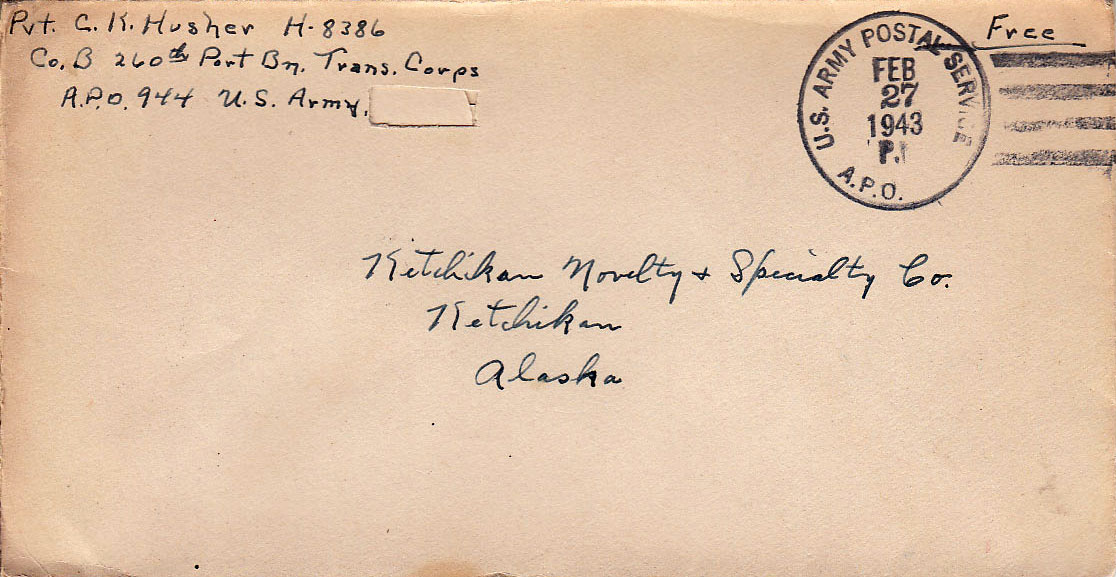 Pvt. C. K. Husher H-8386
Co. B 260th Port Bn. Trans. Corps
A.P.O. 944 U.S. Army,
Free
U.S. ARMY POSTAL SERVICE
FEB
27
1943
A.P.O.
Ketchikan Novelty & Specialty Co.
Ketchikan
Alaska